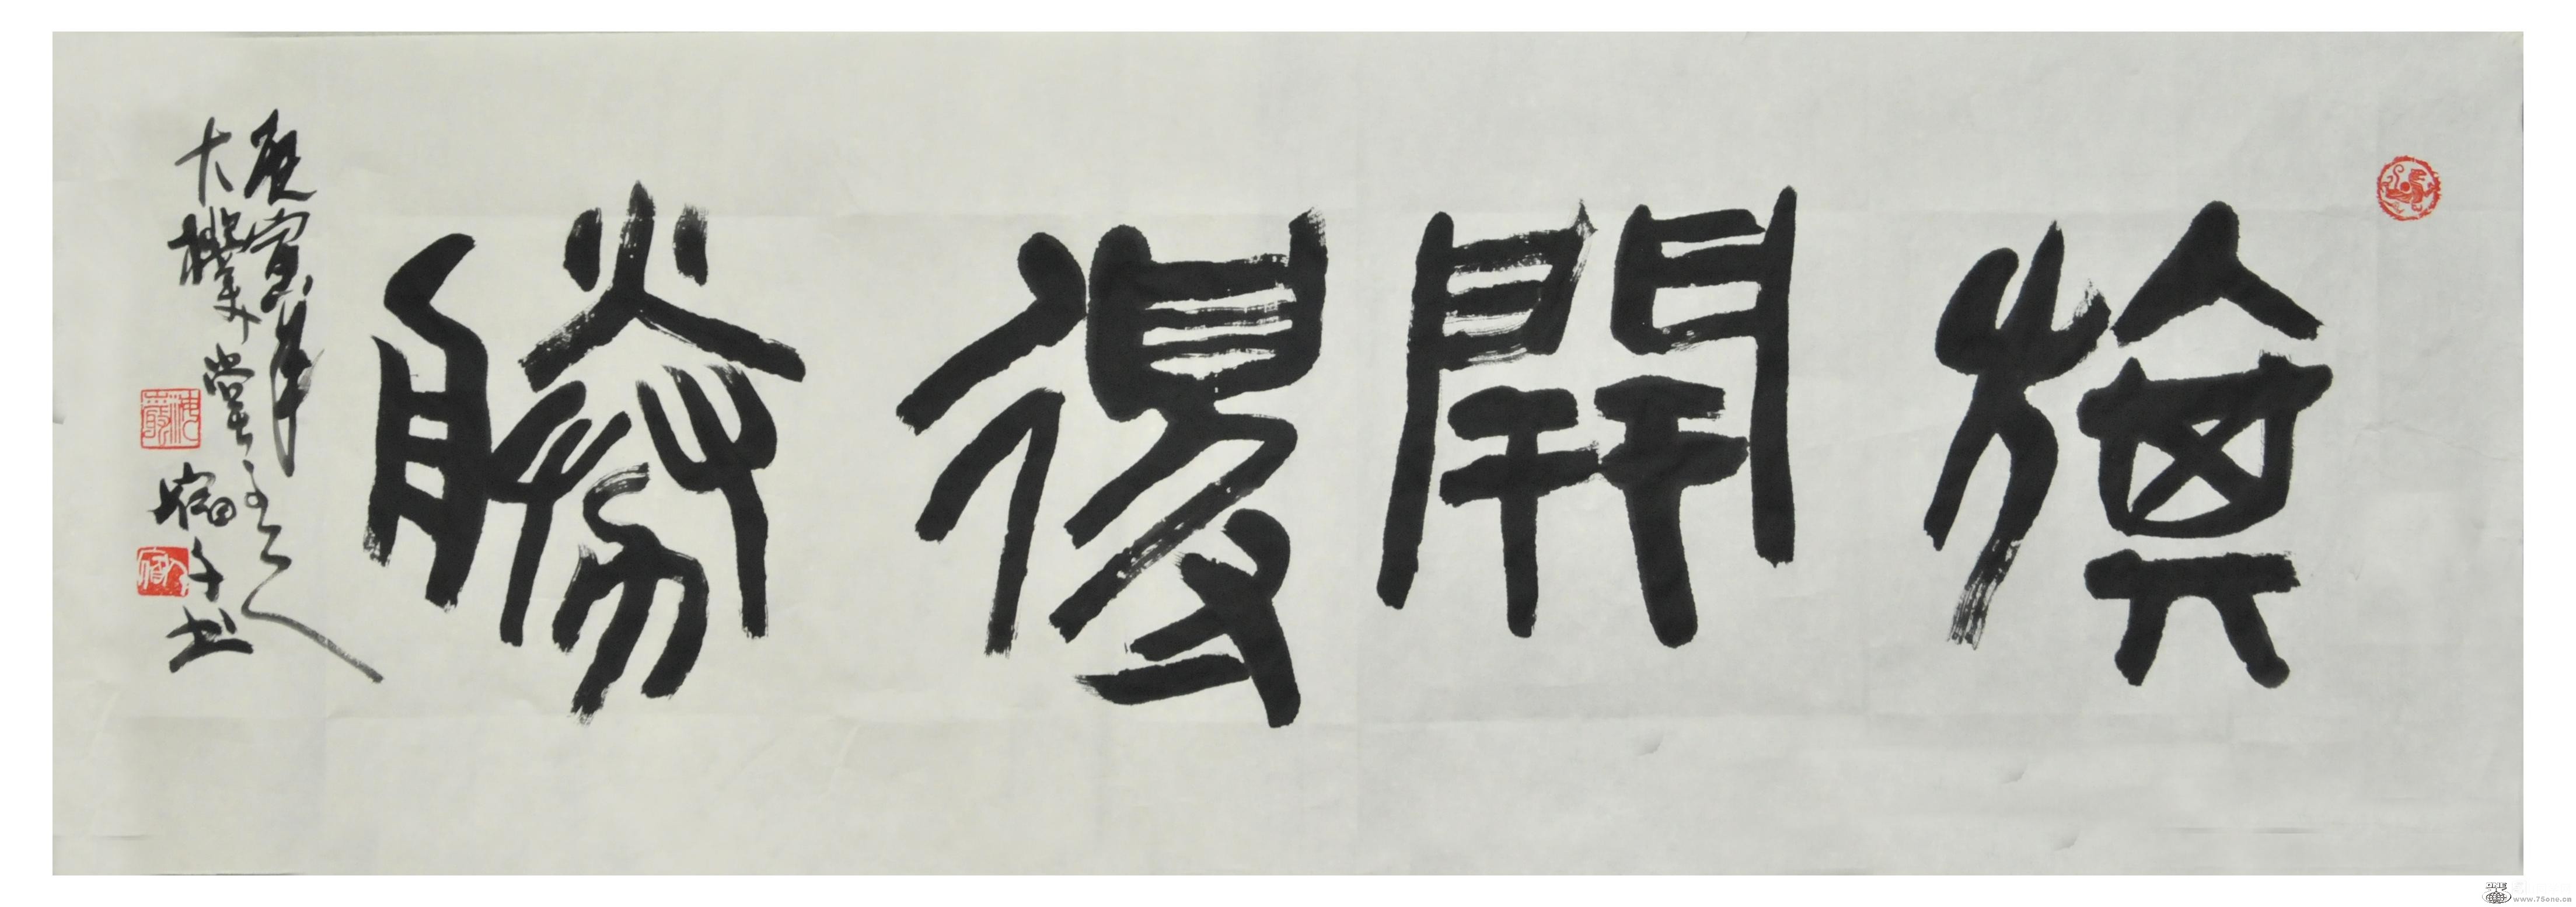 旗開得勝
庚寅年
大樸堂主人
書
www.75one.cn